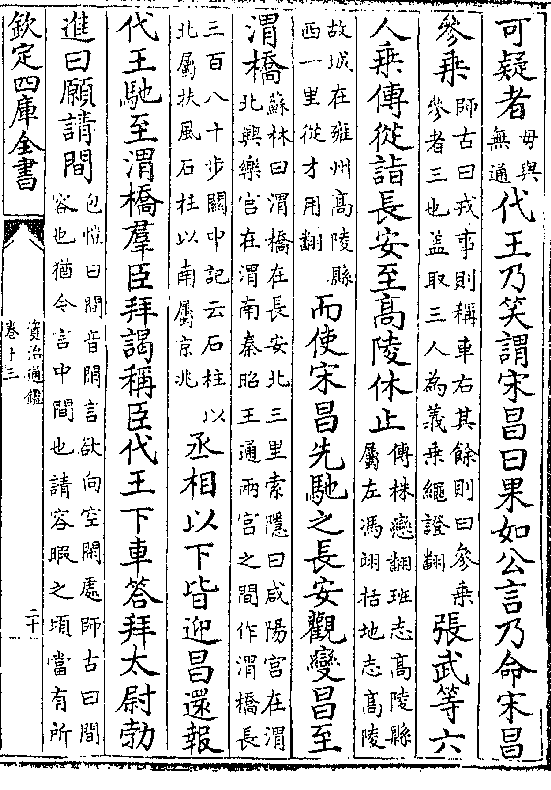 可疑者毋與無通代王乃笑謂宋昌曰果如公言乃命宋昌
參乗師古曰戎事則稱車右其餘則曰參乗參者三也蓋取三人為義乗繩證翻張武等六
人乗傳從詣長安至髙陵休止傳株戀翻班志髙陵縣屬左馮翊括地志髙陵
故城在雍州髙陵縣西一里從才用翻而使宋昌先馳之長安觀變昌至
渭橋蘇林曰渭橋在長安北三里索隱曰咸陽宫在渭北興樂宫在渭南秦昭王通兩宫之間作渭橋長
三百八十步闗中記云石柱以北屬扶風石柱以南屬京兆丞相以下皆迎昌還報
代王馳至渭橋羣臣拜謁稱臣代王下車答拜太尉勃
進曰願請間包愷曰間音閑言欲向空閑處師古曰間容也猶今言中間也請容暇之頃當有所
欽定四庫全書
資治通鑑
卷十三
二十